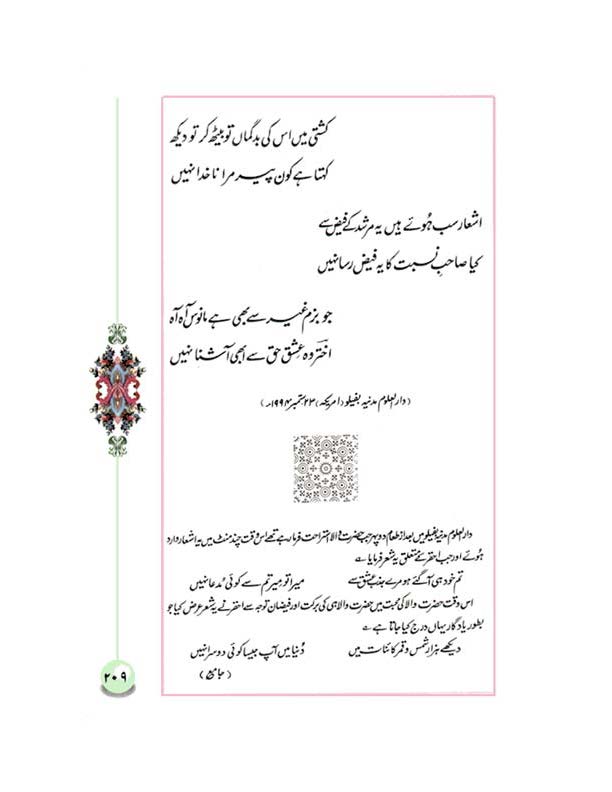 کشتی میں اس کی بدگماں تو بیٹھ کر تو دیکھ
کہتا ہے کون پیر مرا ناخدا نہیں
اشعار سب ہُوئے ہیں یہ مرشد کے فیض سے
کیا صاحبِ نسبت کا یہ فیض رسا نہیں
جو بزمِ غیر سے بھی ہے مانوس آہ آہ
اخترؔ وہ عِشقِ حق سے ابھی آشنا نہیں
(دارالعلوم مدنیہ بفیلو (امریکہ) ۲۳ ستمبر ۱۹۹۴ء)
دارالعلوم مدنیہ بفیلو میں بعد از طعام دوپہر جب حضرت والا استراحت فرما رہے تھے اس وقت چند منٹ میں یہ اشعار وارد
ہُوئے اور جب احقر کے متعلق یہ شعر فرمایا ؎
تم خود ہی آ گئے ہو مرے جذبِ عشق سے میرا تو میر تم سے کوئی مُدعا نہیں
اس وقت حضرت والا کی محبت میں حضرت والا ہی کی برکت اور فیضانِ توجہ سے احقر نے یہ شعر عرض کیا جو
بطور یادگار یہاں درج کیا جاتا ہے ؎
دیکھے ہزار شمس و قمر کائنات میں دُنیا میں آپ جیسا کوئی دوسرا نہیں
(جامع)
۲۰۹